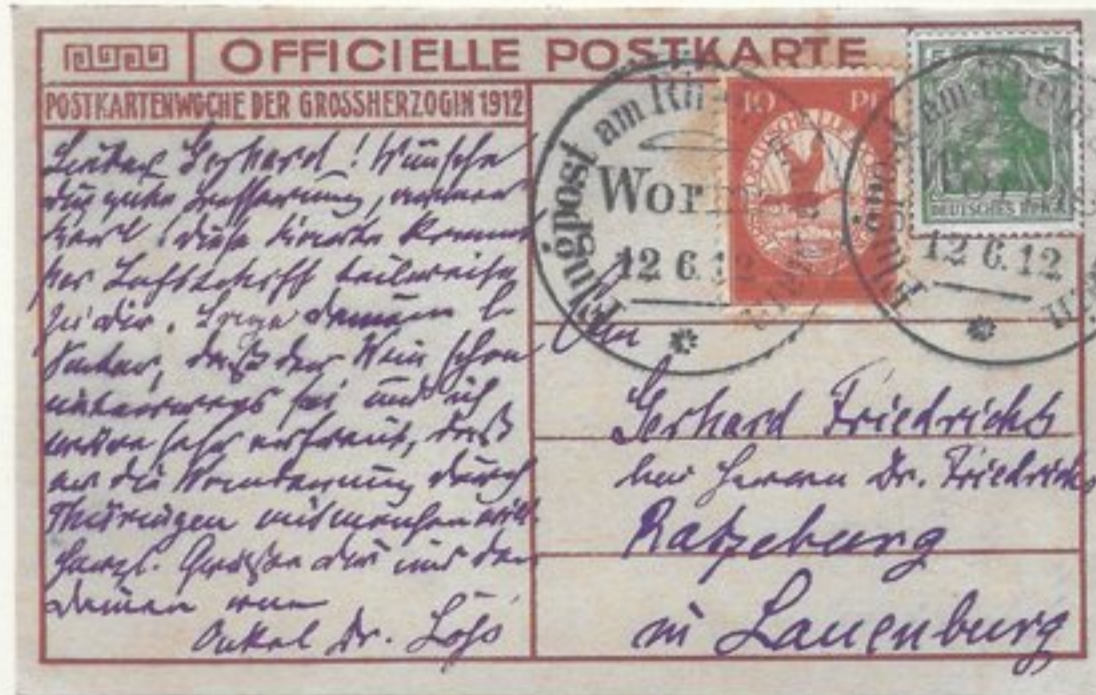 OFFICIELLE POSTKARTE
POSTKARTENWOCHE DER GROSSHERZOGIN 1912
Lieber Gerhard! Wünsche
dir gute Besserung,
Karl! Diese Karte kommt
per Luftschiff teilweise
zu dir. Sage deinem l.
Vater, daß der Wein schon
unterwegs sei und ich
wäre sehr erfreut, daß
er die Wanderung durch
Thüringen mitmachen will.
Herzl. Grüße dir und den
Deinen von
Onkel Dr. Löhs
10 Pf
Flugpost am Rhein
Worms
12 6.12
5 5
DEUTSCHES REICH
Flugpost am Rhein
12 6.12
An
Gerhard Friedrichs
bei Herrn Dr. Friedrichs
Ratzeburg
in Lauenburg